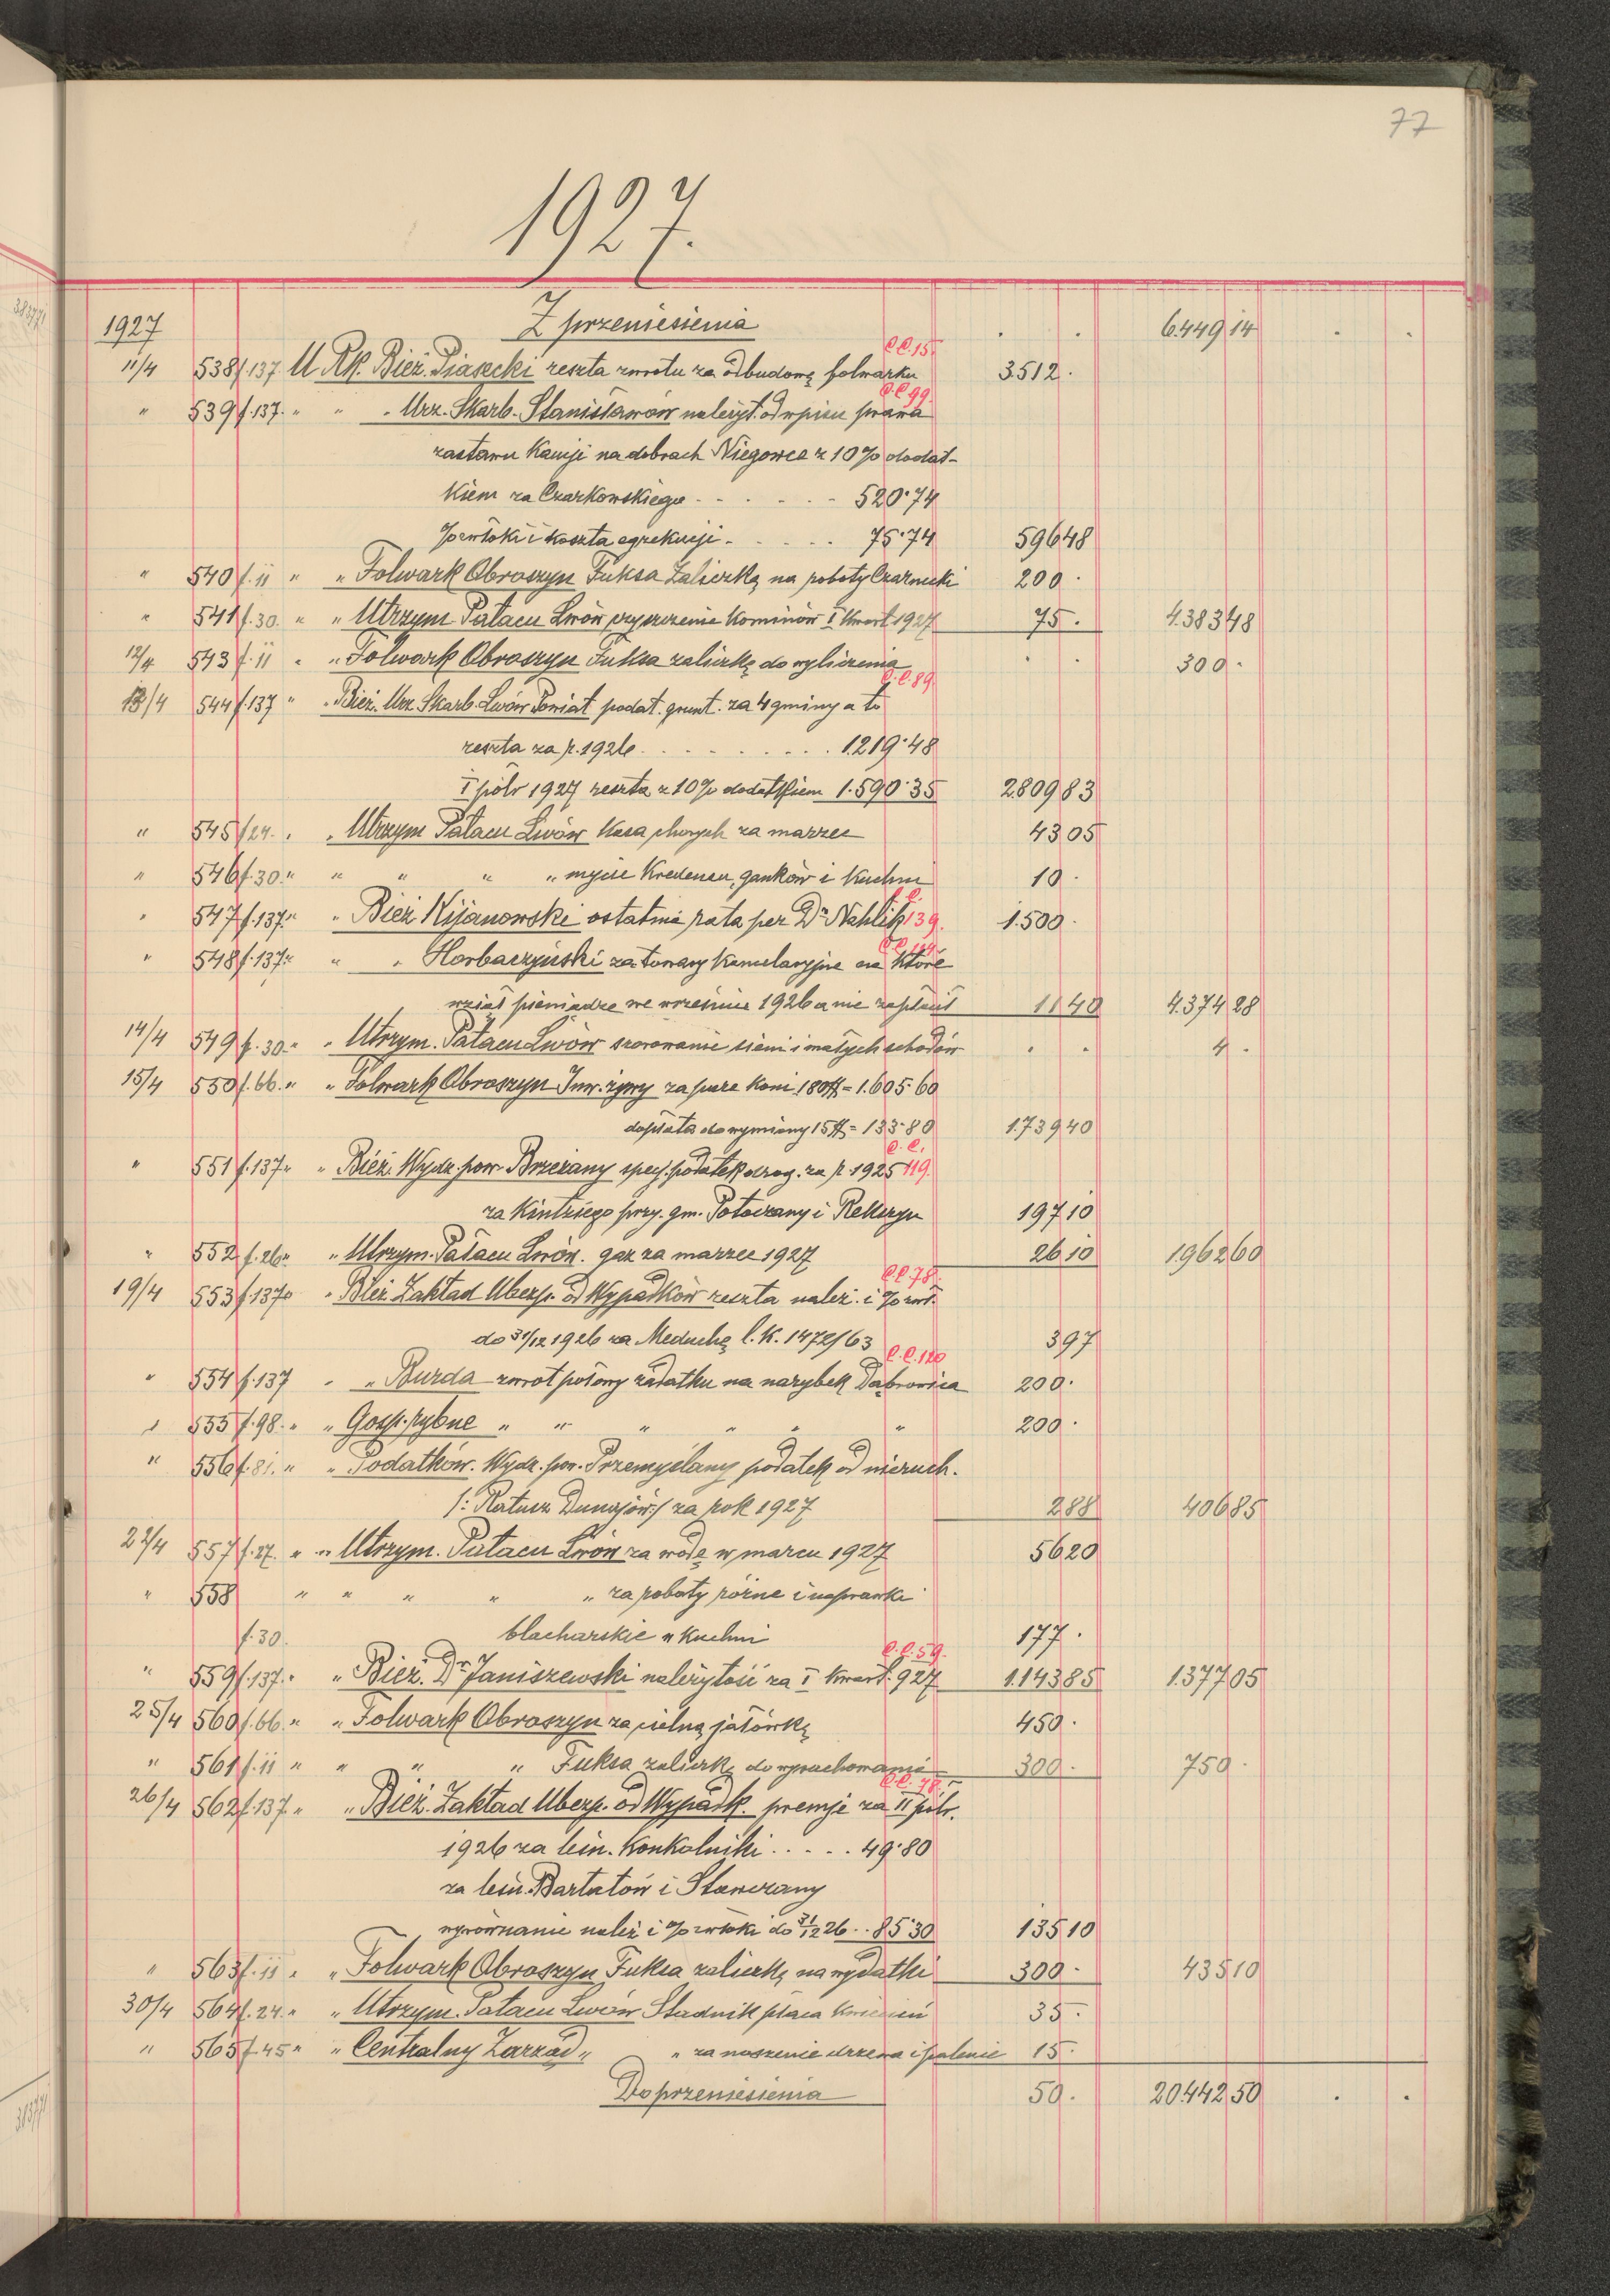 77
1927.
1927 Z przeniesienia . . 6.449 14 . .
C.C. 15.
11/4 538 f.137 U Rk. Bież. Piasecki reszta zwrotu za odbudowę folwarku 3.512 .
C.C. 99.
" 539 f.137. " " " Urz. Skarb. Stanisławów należyt. od wpisu prawa
zastawu Kaucji na dobrach Niegowce z 10% dodat-
kiem za Czarkowskiego - - - - - - 520·74
% zwłoki i koszta egzekucji - . . . . 75·74 596 48
" 540 f. 11 " " Folwark Obroszyn Fuksa Zaliczką na roboty Czarnecki 200 ·
" 541 f. 30. " " Utrzym. Pałacu Lwów czyszczenie Kominów I Kwart. 1927 75 . 4.383 48
12/4 543 f. 11 " " Folwark Obroszyn Fuksa zaliczkę do wyliczenia . . 300 ·
C.C. 89.
13/4 544 f.137 " " Bież. Urz. Skarb. Lwów Powiat podat. grunt. za 4 gminy a to
reszta za r. 1926 . . . . . . . . . 1.219·48
I półr 1927 reszta z 10% dodatkiem 1.590·35 2.809 83
" 545 f 24. " " Utrzym Pałacu Lwów Kasa chorych za marzec 43 05
" 546 f. 30. " " " " " mycie Kredensu, ganków i kuchni 10 ·
C.C.
" 547 f.137. " " Bież Kijanowski ostatnia rata per Dr Nahlik 139. 1.500 ·
C.C. 119.
" 548 f.137. " " " Horbaczyński za towary Kancelaryjne na które
wziął pieniądze we wrześniu 1926 a nie zapłacił 11 40 4.374 28
14/4 549 f. 30. " " Utrzym. Pałacu Lwów szorowanie sieni i małych schodów . . 4 .
15/4 550 f. 66. " " Folwark Obroszyn Inw. żywy za parę koni 180 # = 1.605·60
dopłata do wymiany 15 # = 133·80 1.739 40
C.C.
" 551 f.137. " " Bież. Wydz. pow. Brzeżany specj. podatek drog. za r. 1925 119.
za Kintziego przy. gm. Potoczany i Rekszyn 197 10
" 552 f. 26. " " Utrzym. Pałacu Lwów. gaz za marzec 1927 26 10 1.962 60
C.C. 78.
19/4 553 f.137. " Bież. Zakład Ubezp. od Wypadków reszta należ. i % zwł.
do 31/12 1926 za Meduchę l. K. 1472/63 3 97
C.C. 120
" 554 f.137 " " Burda zwrot połowy zadatku na narybek Dąbrowica 200 ·
" 555 f. 98. " " Gosp. rybne " " " " " " 200 ·
" 556 f. 81. " " Podatków. Wydz. pow. Przemyślany podatek od nieruch.
/: Ratusz Dunajów :/ za rok 1927 2 88 406 85
22/4 557 f. 27. " " Utrzym. Pałacu Lwów za wodę w marcu 1927 56 20
" 558 " " " " " za roboty różne i naprawki
f. 30. blacharskie w kuchni 177 ·
C.C. 59.
" 559 f.137. " " Bież. Dr Janiszewski należytość za I kwart. 927 1.143 85 1.377 05
25/4 560 f. 66. " " Folwark Obroszyn za cielną jałówkę 450 ·
" 561 f. 11 " " " " Fuksa zaliczkę do wyrachowania 300 · 750 ·
C.C. 78.
26/4 562 f.137. " " Bież. Zakład Ubezp. od Wypadk. premje za II półr.
1926 za leśn. Konkolniki . . . . . 49·80
za leśn. Bartatów i Stawczany
wyrównanie należ i % zwłoki do 31/12 26 . . 85·30 135 10
" 563 f. 11 " " Folwark Obroszyn Fuksa zaliczkę na wydatki 300 · 435 10
30/4 564 f. 24. " " Utrzym. Pałacu Lwów Studnik płaca kwiecień 35 ·
" 565 f. 45 " " Centralny Zarząd " " za noszenie drzewa i palenie 15 ·
Do przeniesienia 50 . 20.442 50 . .